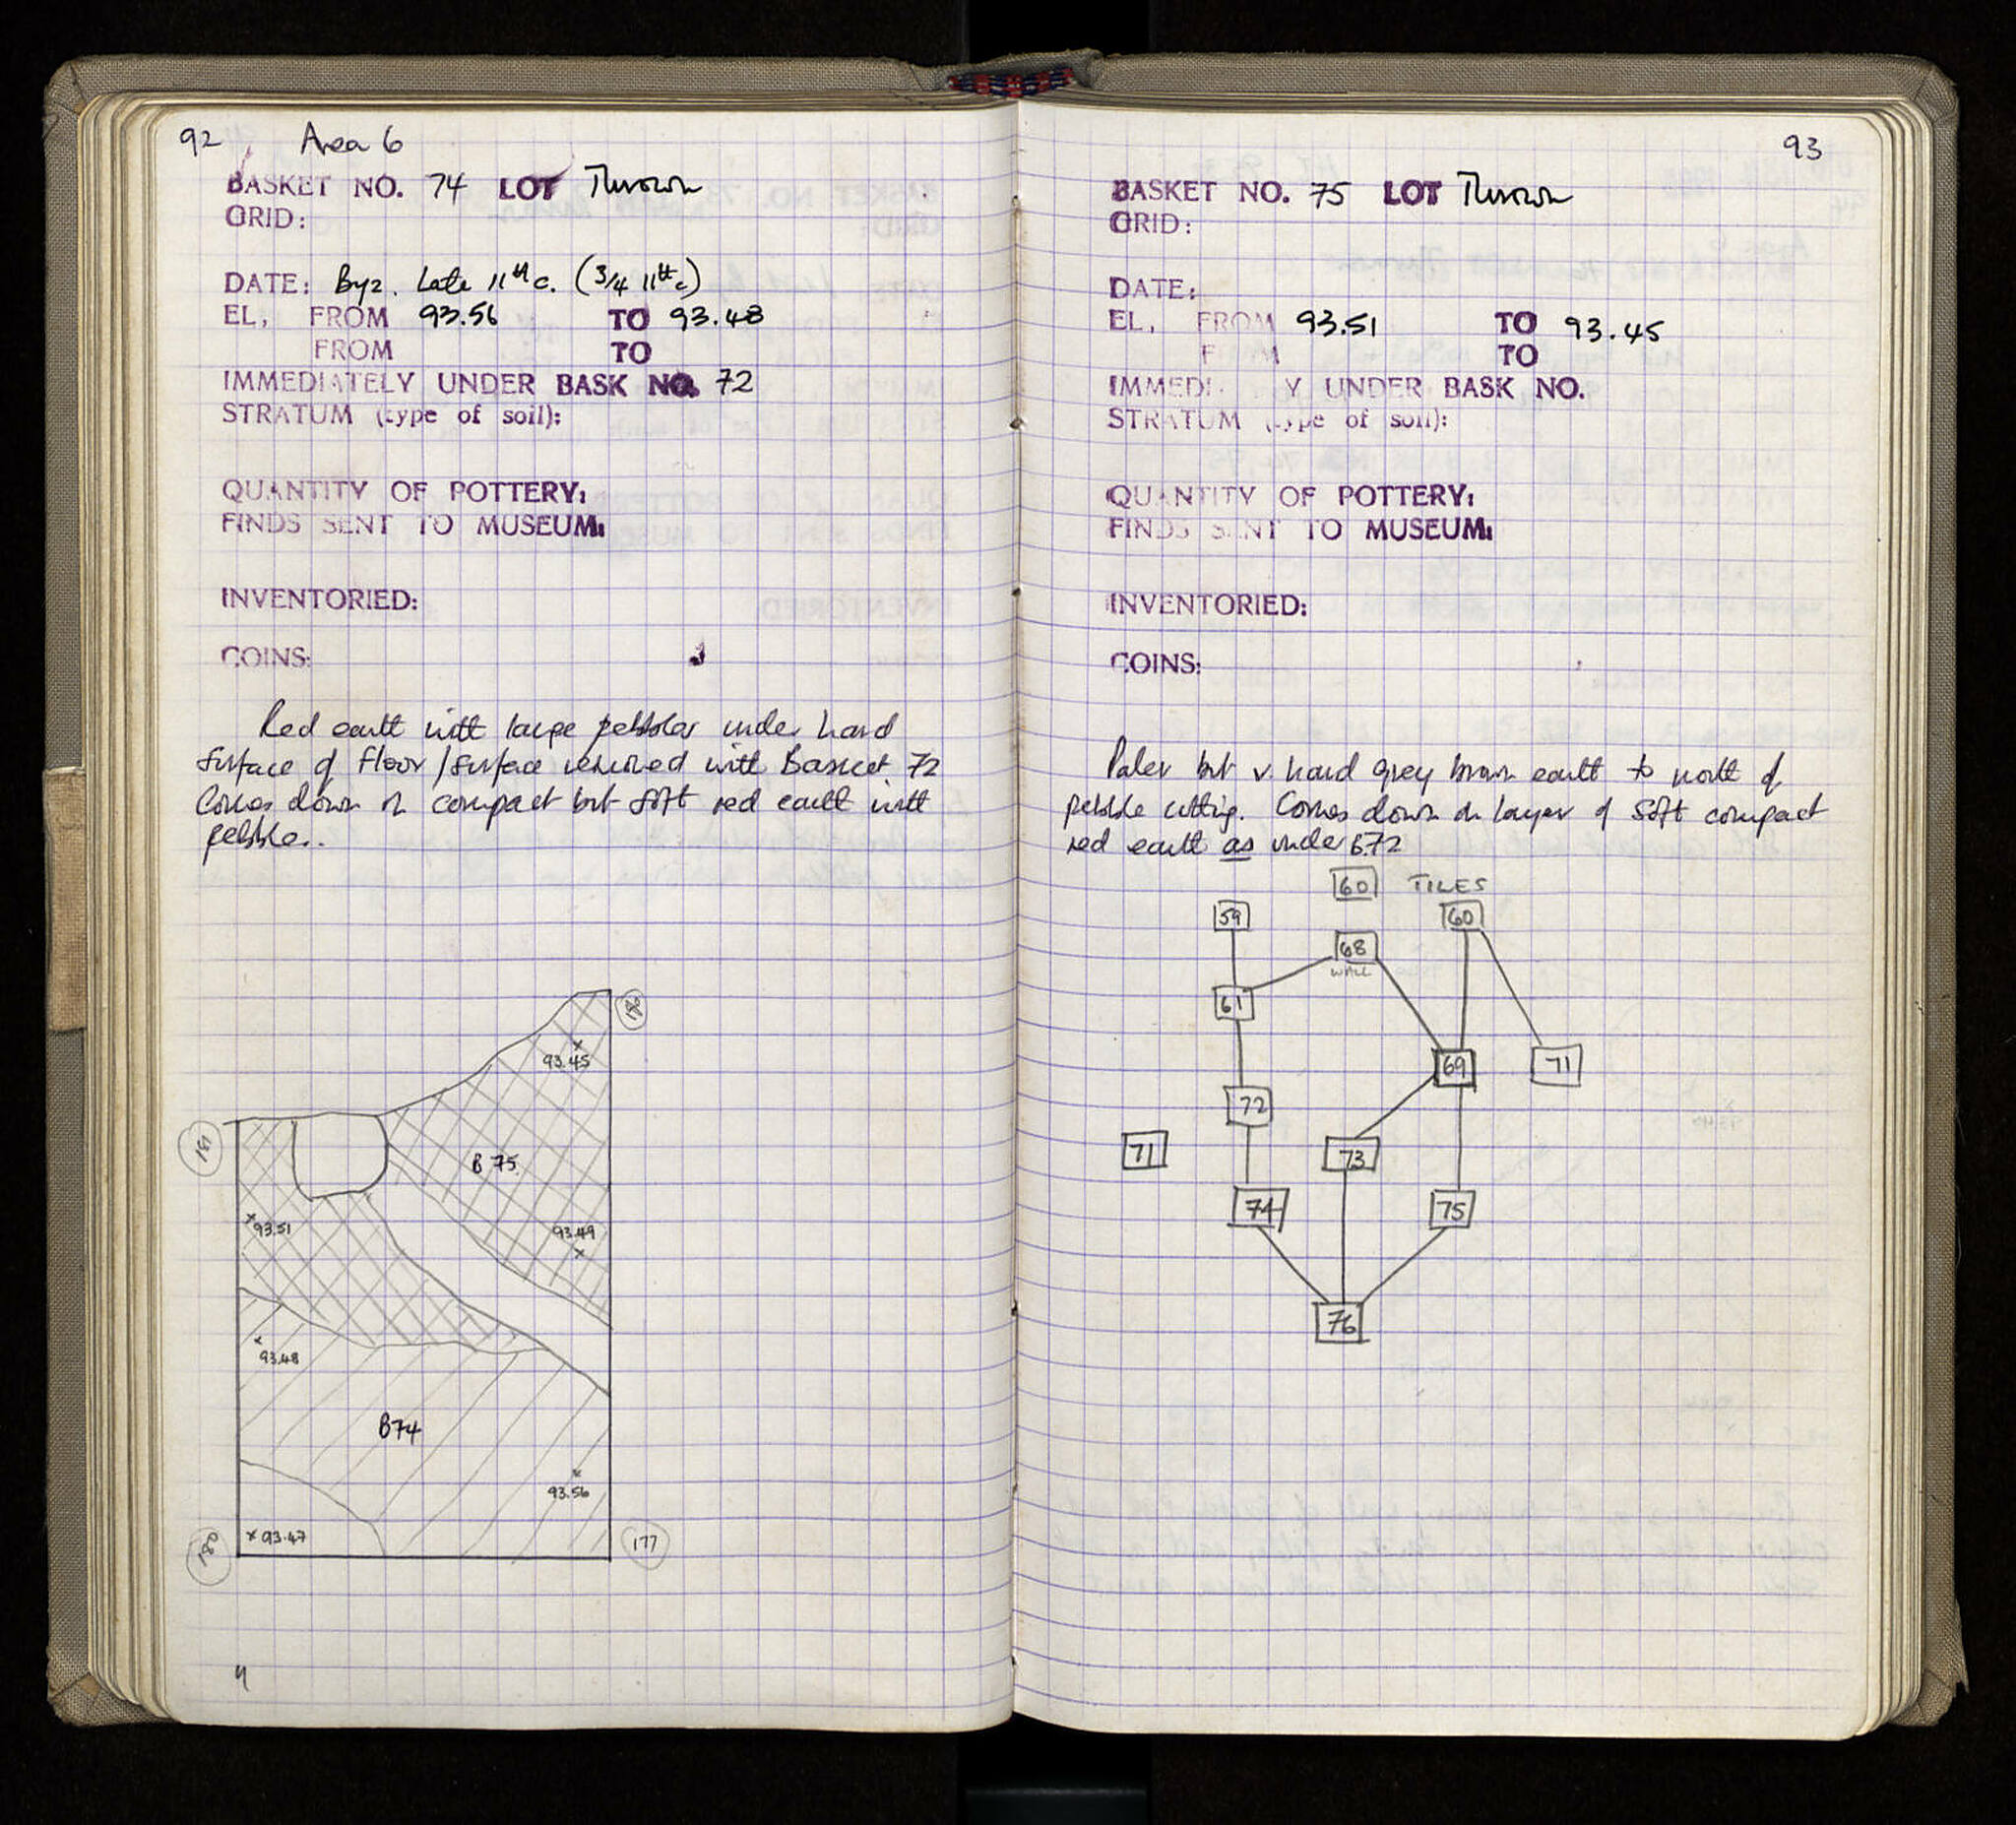 92 Area 6
BASKET NO. 74 LOT Thrown
GRID:
DATE: Byz. Late 11th c. (3/4 11th c)
EL, FROM 93.56 TO 93.48
FROM TO
IMMEDIATELY UNDER BASK NO. 72
STRATUM (type of soil):
QUANTITY OF POTTERY:
FINDS SENT TO MUSEUM:
INVENTORIED:
COINS:
Red earth with large pebbles under hard
surface of floor / surface removed with Basket 72
Comes down on compact but soft red earth with
pebbles.
93.45
B 75
93.51
93.49
93.48
B74
93.56
93.47
180
177
93
BASKET NO. 75 LOT Thrown
GRID:
DATE:
EL, FROM 93.51 TO 93.45
FROM TO
IMMEDI Y UNDER BASK NO.
STRATUM (type of soil):
QUANTITY OF POTTERY:
FINDS SENT TO MUSEUM:
INVENTORIED:
COINS:
Paler but v. hard grey brown earth to north of
pebble cutting. Comes down on layer of soft compact
red earth as under B72
60 TILES
59 60
68
WALL
61
69 71
72
71 73
74 75
76